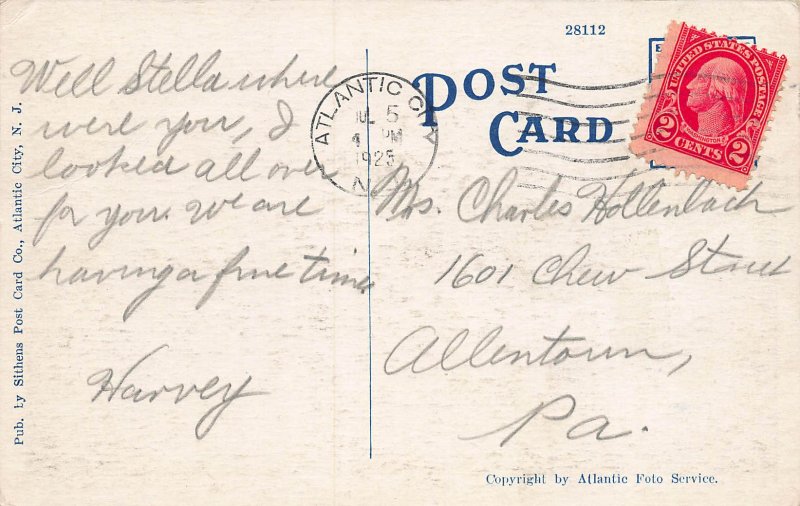 28112
POST
CARD
UNITED STATES POSTAGE
WASHINGTON
2 CENTS 2
ATLANTIC CITY
JUL 5
4 PM
1925
N.J.
Well Stella where
were you, I
looked all over
for you. We are
having a fine time
Harvey
Mrs. Charles Hollenbach
1601 Chew Street
Allentown,
Pa.
Pub. by Sithens Post Card Co., Atlantic City, N. J.
Copyright by Atlantic Foto Service.